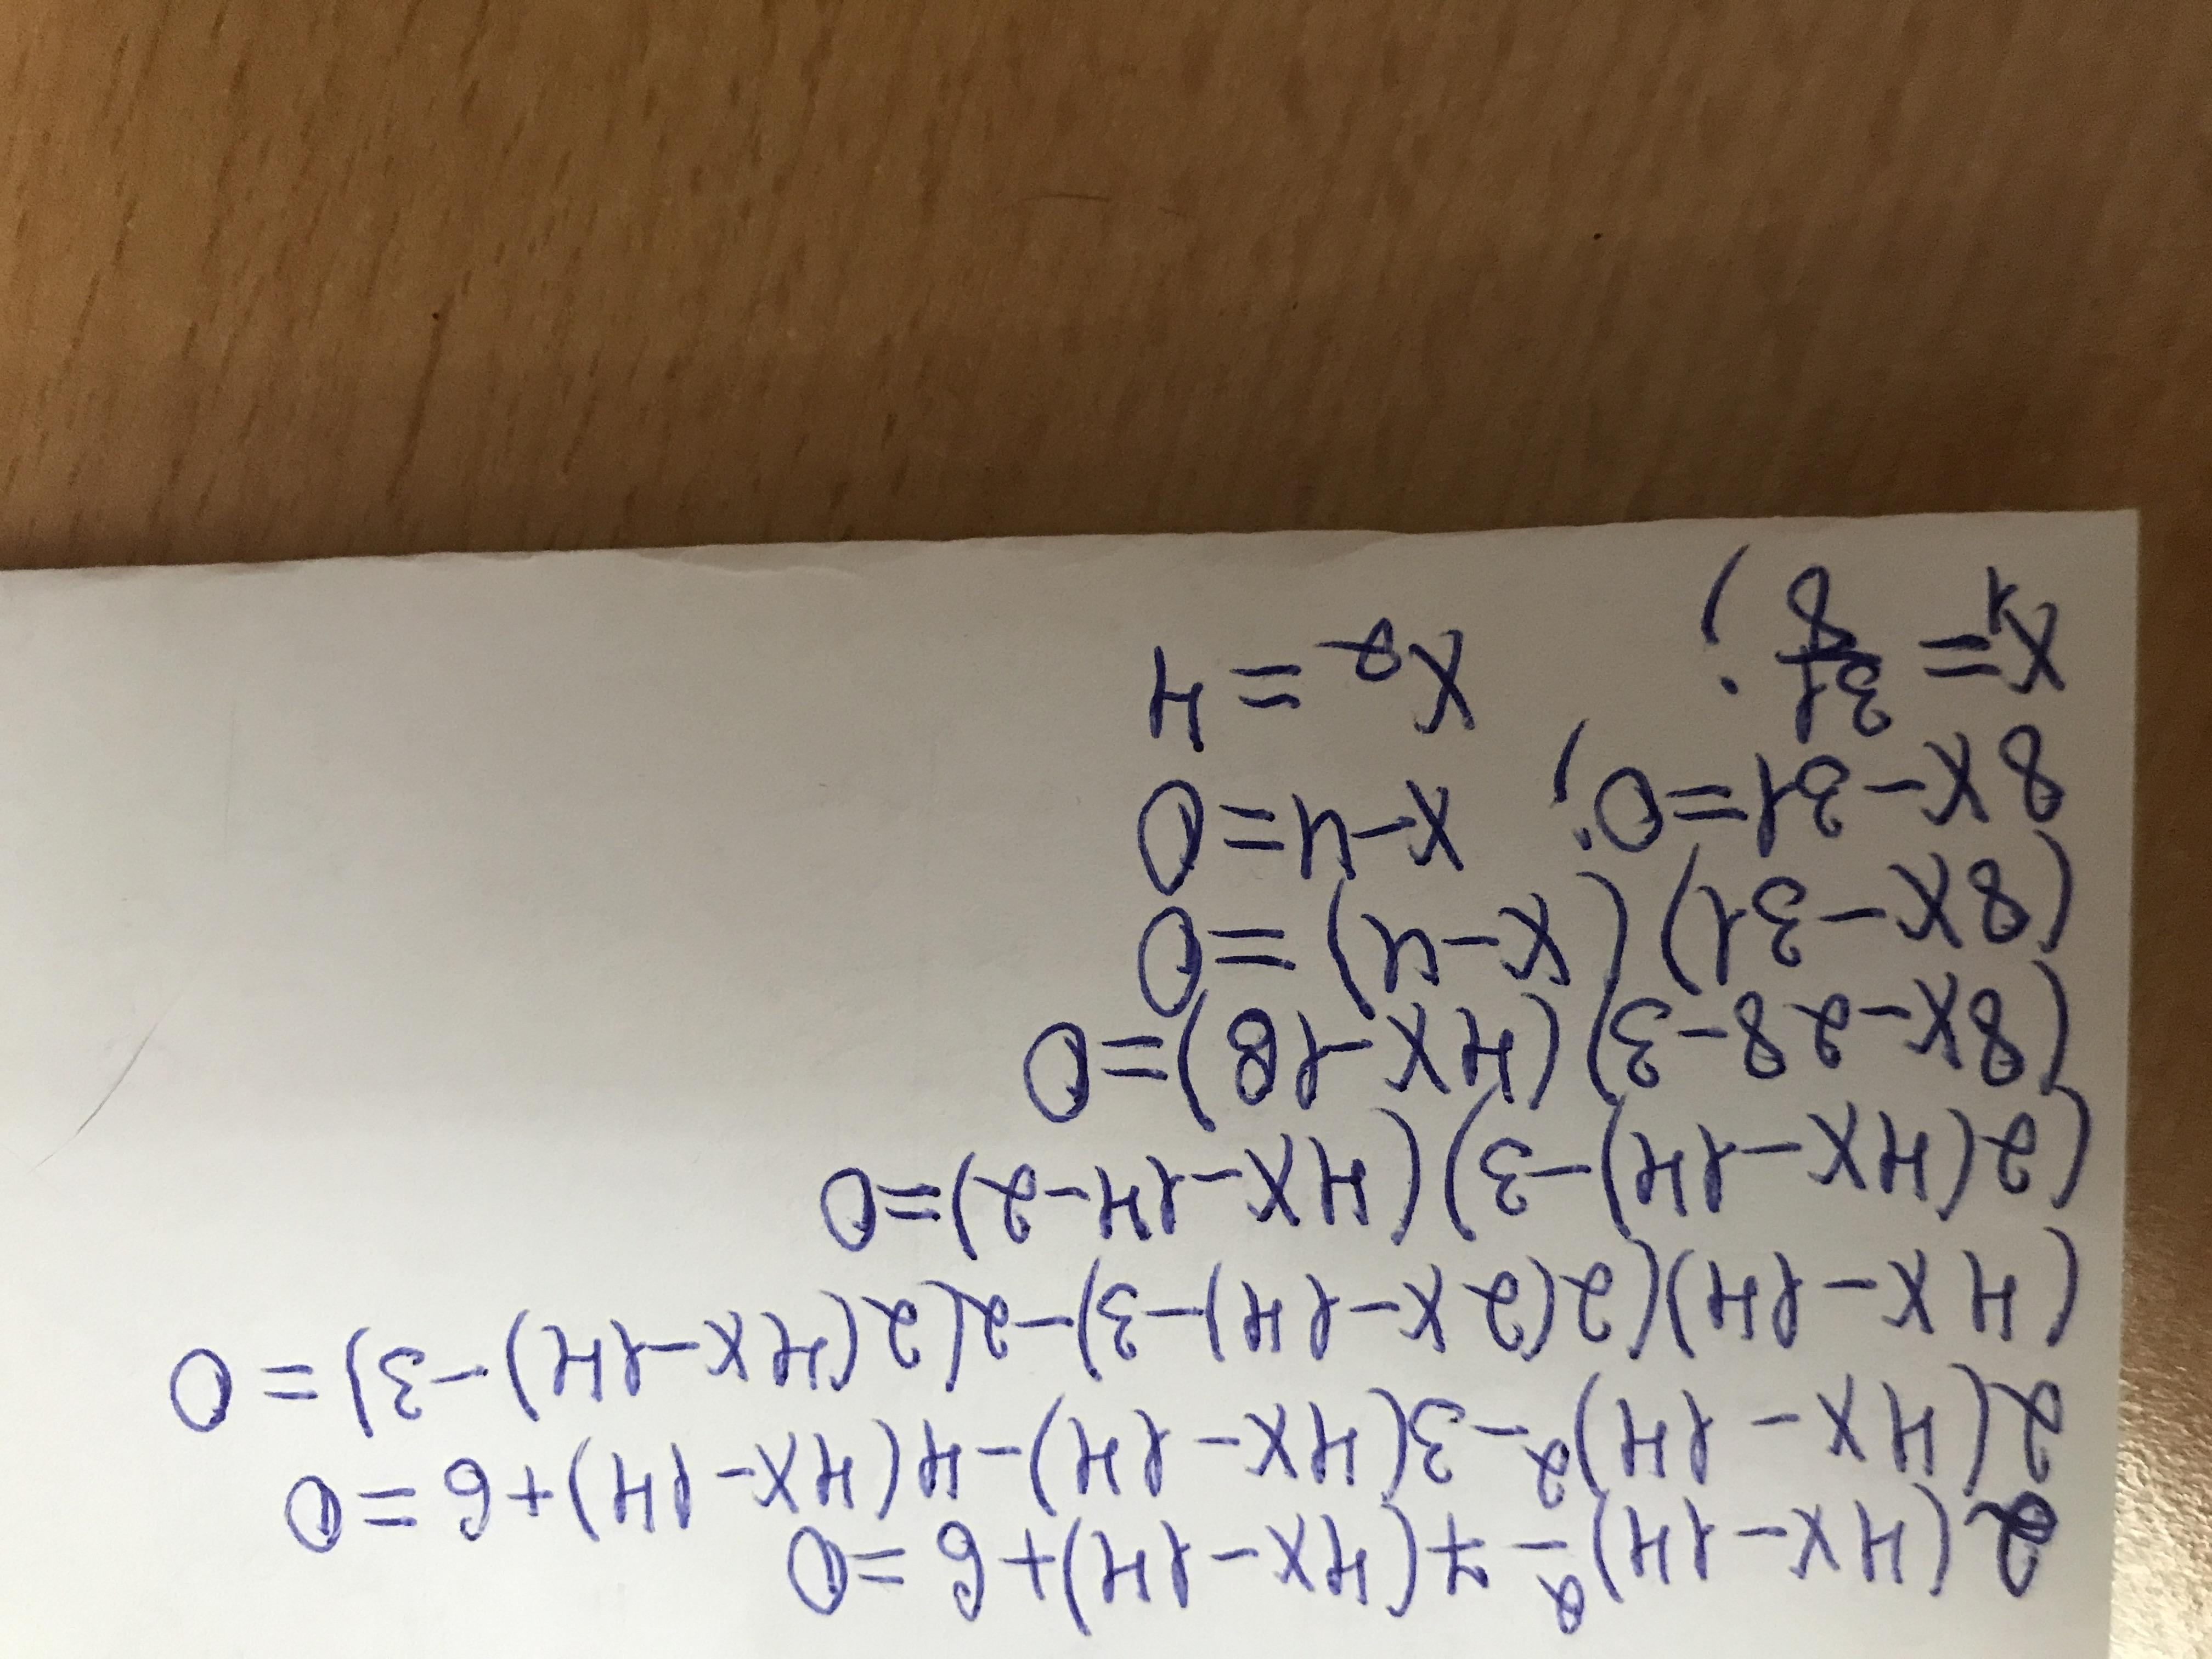 2(4x-14)²-7(4x-14)+6=0
2(4x-14)²-3(4x-14)-4(4x-14)+6=0
(4x-14)(2(2x-14)-3)-2(2(4x-14)-3)=0
(2(4x-14)-3)(4x-14-2)=0
(8x-28-3)(4x-16)=0
(8x-31)(x-4)=0
8x-31=0; x-4=0
x₁=31/8; x₂=4